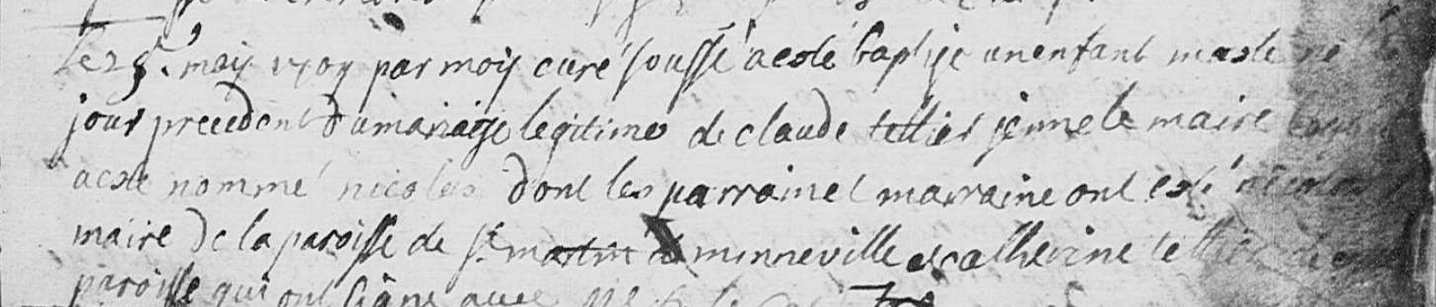 Le 25e may 1709 par moy curé soussé a esté baptisé un enfant masle né le
jour precedent du mariage legitime de claude tellier jenne le maire
a esté nommé nicolas dont les parrain et marraine ont esté nicolas
maire de la paroisse de st martin de minneville et catherine tellier
paroisse qui ont signé avec